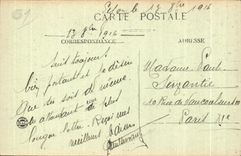 13 8bre 1916
CARTE POSTALE
13 8bre 1916
CORRESPONDANCE
ADRESSE
Suis toujours
bien portant et je désire
que du soit de même.
En attendant de plus
longue lettre. Reçois mes
meilleurs baisers
Madame Paul
10 Rue de Vaucouleurs
Paris XIe